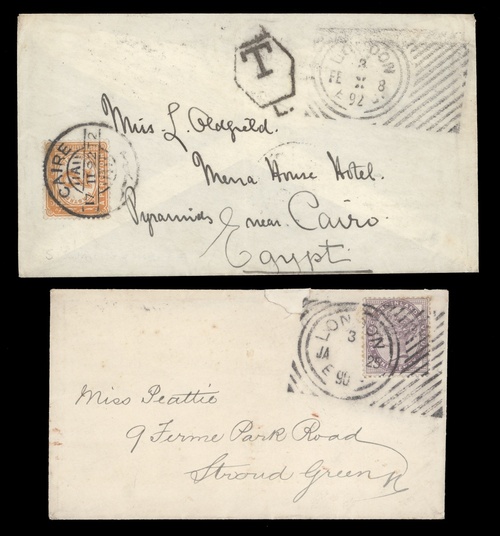 T
L.
LONDON
3
FE 8
X
E 92
Miss. L. Oldfield.
Mena House Hotel.
Pyramids near Cairo.
Egypt.
CAIRE
17 II 92
LONDON
3
JA 23
E 90
Miss Peattie
9 Ferme Park Road
Stroud Green
N